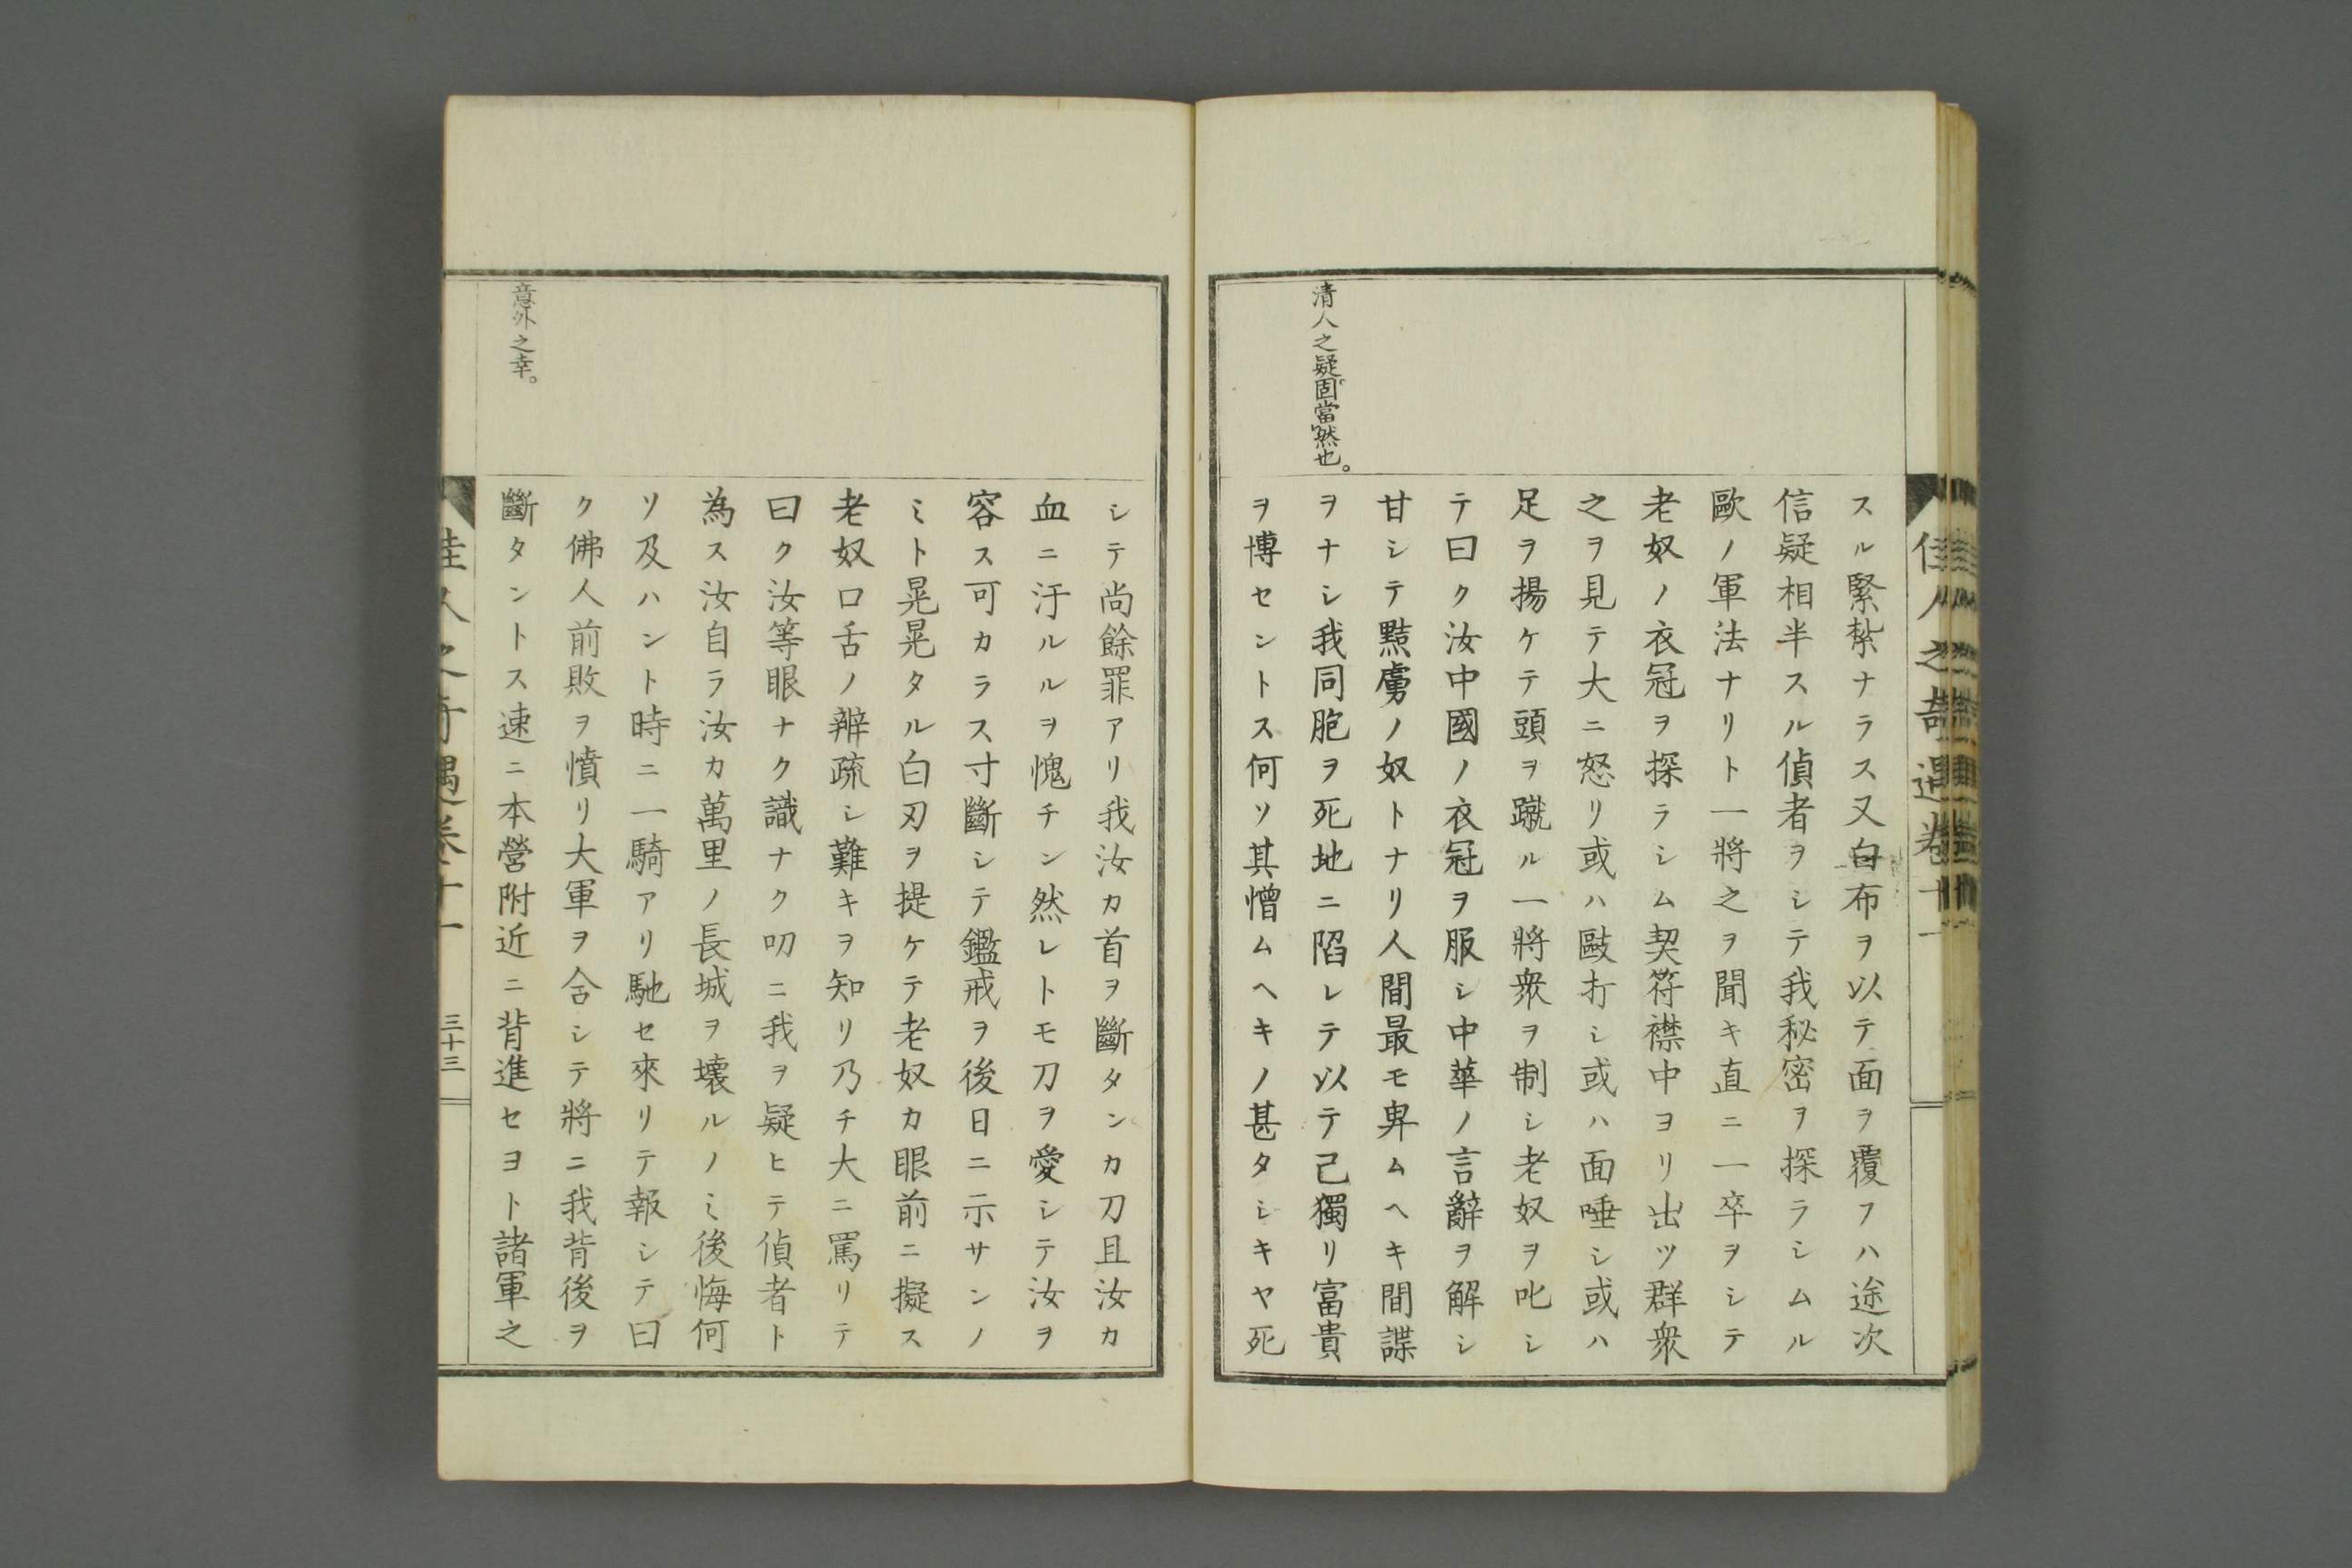 佳人之奇遇卷十一
スル緊紮ナラス又白布ヲ以テ面ヲ覆フハ途次
信疑相半スル偵者ヲシテ我秘密ヲ探ラシムル
歐ノ軍法ナリト一將之ヲ聞キ直ニ一卒ヲシテ
老奴ノ衣冠ヲ探ラシム契符襟中ヨリ出ツ群衆
之ヲ見テ大ニ怒リ或ハ毆打シ或ハ面唾シ或ハ
足ヲ揚ケテ頭ヲ蹴ル一將衆ヲ制シ老奴ヲ叱シ
テ曰ク汝中國ノ衣冠ヲ服シ中華ノ言辭ヲ解シ
甘シテ黠虜ノ奴トナリ人間最モ卑ムヘキ間諜
清人之疑固當然也。
ヲナシ我同胞ヲ死地ニ陷レテ以テ己獨リ富貴
ヲ博セントス何ソ其憎ムヘキノ甚タシキヤ死
シテ尚餘罪アリ我汝カ首ヲ斷タンカ刀且汝カ
血ニ汙ルルヲ愧チン然レトモ刀ヲ愛シテ汝ヲ
容ス可カラス寸斷シテ鑑戒ヲ後日ニ示サンノ
ミト晃晃タル白刃ヲ提ケテ老奴カ眼前ニ擬ス
老奴口舌ノ辨疏シ難キヲ知リ乃チ大ニ罵リテ
曰ク汝等眼ナク識ナク叨ニ我ヲ疑ヒテ偵者ト
為ス汝自ラ汝カ萬里ノ長城ヲ壞ルノミ後悔何
ソ及ハント時ニ一騎アリ馳セ來リテ報シテ曰
ク佛人前敗ヲ憤リ大軍ヲ舍シテ將ニ我背後ヲ
意外之幸。
斷タントス速ニ本營附近ニ背進セヨト諸軍之
佳人之奇遇卷十一
三十三